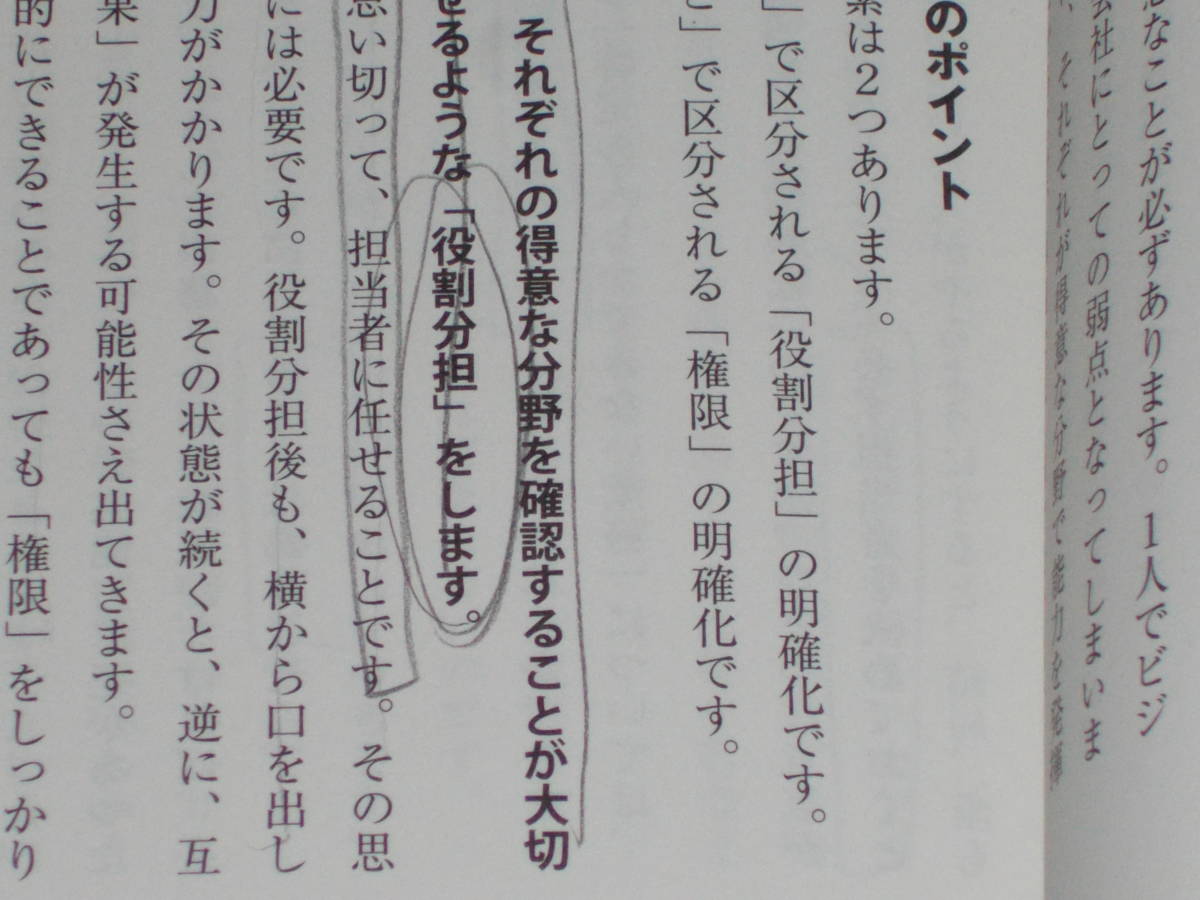 なことが必ずあります。１人でビジ
会社にとっての弱点となってしまいま
、それぞれが得意な分野で能力を発揮
のポイント
素は２つあります。
」で区分される「役割分担」の明確化です。
と」で区分される「権限」の明確化です。
それぞれの得意な分野を確認することが大切
せるような「役割分担」をします。
思い切って、担当者に任せることです。その思
には必要です。役割分担後も、横から口を出し
力がかかります。その状態が続くと、逆に、互
果」が発生する可能性さえ出てきます。
的にできることであっても「権限」をしっかり